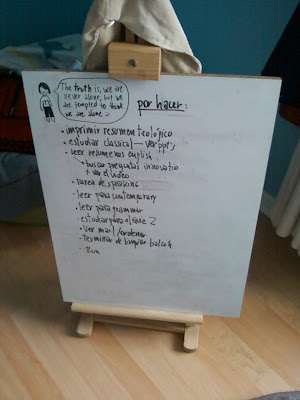 The truth is, we are
never alone, but we
are tempted to think
we are alone
por hacer:
• imprimir resumen teológico
• estudiar classical → ver ppt's
• leer resúmenes english
• buscar preguntas innovatio
+ ver el video
• tarea de speaking
• leer para contemporary
• leer para grammar
• estudiar para el 2
• ver mail/ordenar
• Terminar de limpiar